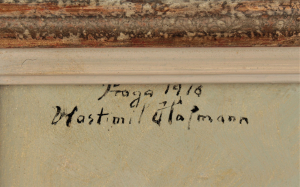 Praga 1918
Wlastimil Hofmann